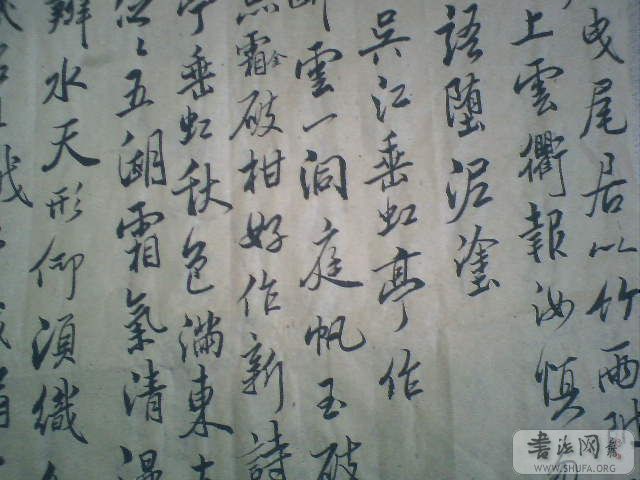 曳尾居以竹兩
上雲衢報汝慎
語堕泥塗
吳江垂虹亭作
雲一洞庭帆玉破
霜金破柑好作新詩
垂虹秋色滿東
五湖霜氣清
辨水天形仰須織
書法网
WWW.SHUFA.ORG